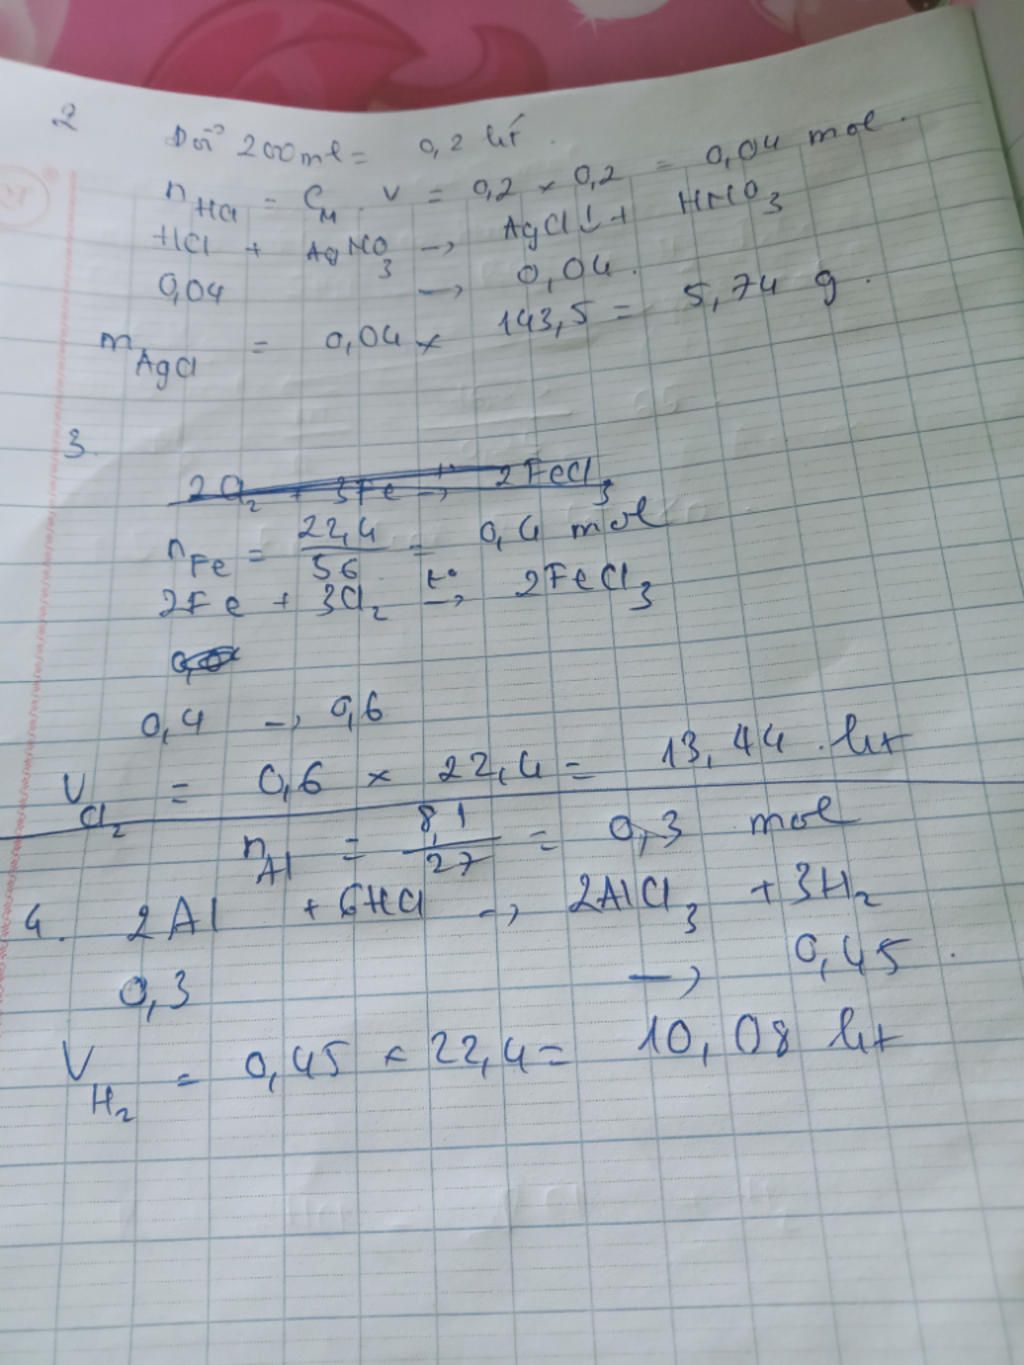 2
Đổi 200ml = 0,2 lít.
nHCl = CM . V = 0,2 × 0,2 = 0,04 mol.
HCl + AgNO3 → AgCl↓ + HNO3
0,04 → 0,04.
mAgCl = 0,04 × 143,5 = 5,74 g.
3.
2Cl2 + 3Fe → 2FeCl3
nFe = 22,4/56 = 0,4 mol
2Fe + 3Cl2 t° → 2FeCl3
0,4 → 0,6
VCl2 = 0,6 × 22,4 = 13,44 lít
nAl = 8,1/27 = 0,3 mol
4. 2Al + 6HCl → 2AlCl3 + 3H2
0,3 → 0,45.
VH2 = 0,45 × 22,4 = 10,08 lít